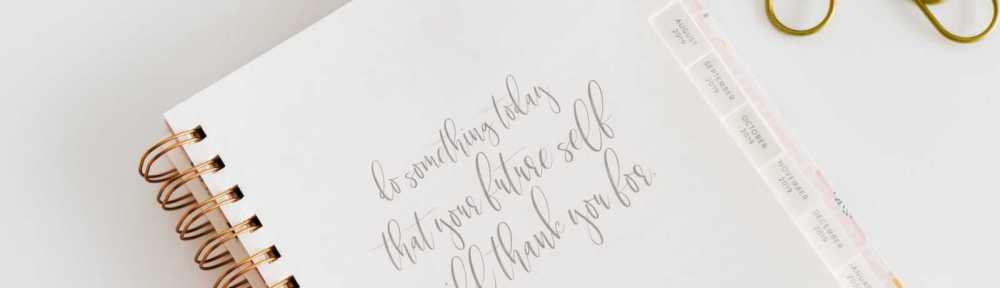 do something today
that your future self
will thank you for.
AUGUST
2019
SEPTEMBER
2019
OCTOBER
2019
NOVEMBER
2019
DECEMBER
2019
JANUARY